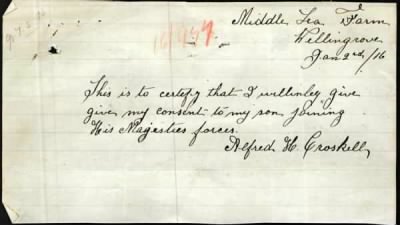 Middle Lea Farm
Wellingrove
Jan 2nd/16
This is to certefy that I willinley give
give my consent to my son joining
His Magesties forces.
Alfred H. Croskell